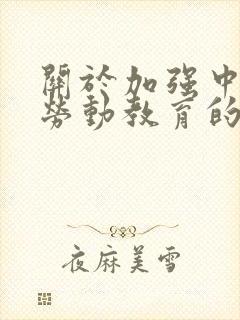 關於加强中
勞動教育的
夜麻美雪